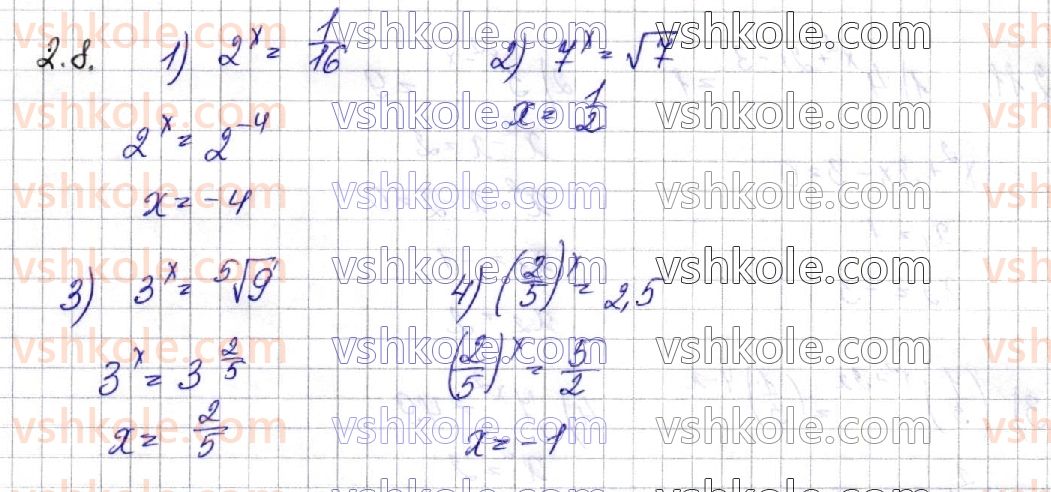 2.8. 1) 2^x = 1/16
2^x = 2^-4
x = -4
2) 7^x = √7
x = 1/2
3) 3^x = ⁵√9
3^x = 3^2/5
x = 2/5
4) (2/5)^x = 2,5
(2/5)^x = 5/2
x = -1
vshkole.com vshkole.com vshkole.com
vshkole.com vshkole.com vshkole.com
vshkole.com vshkole.com vshkole.com
vshkole.com vshkole.com vshkole.com
vshkole.com vshkole.com vshkole.com
vshkole.com vshkole.com vshkole.com